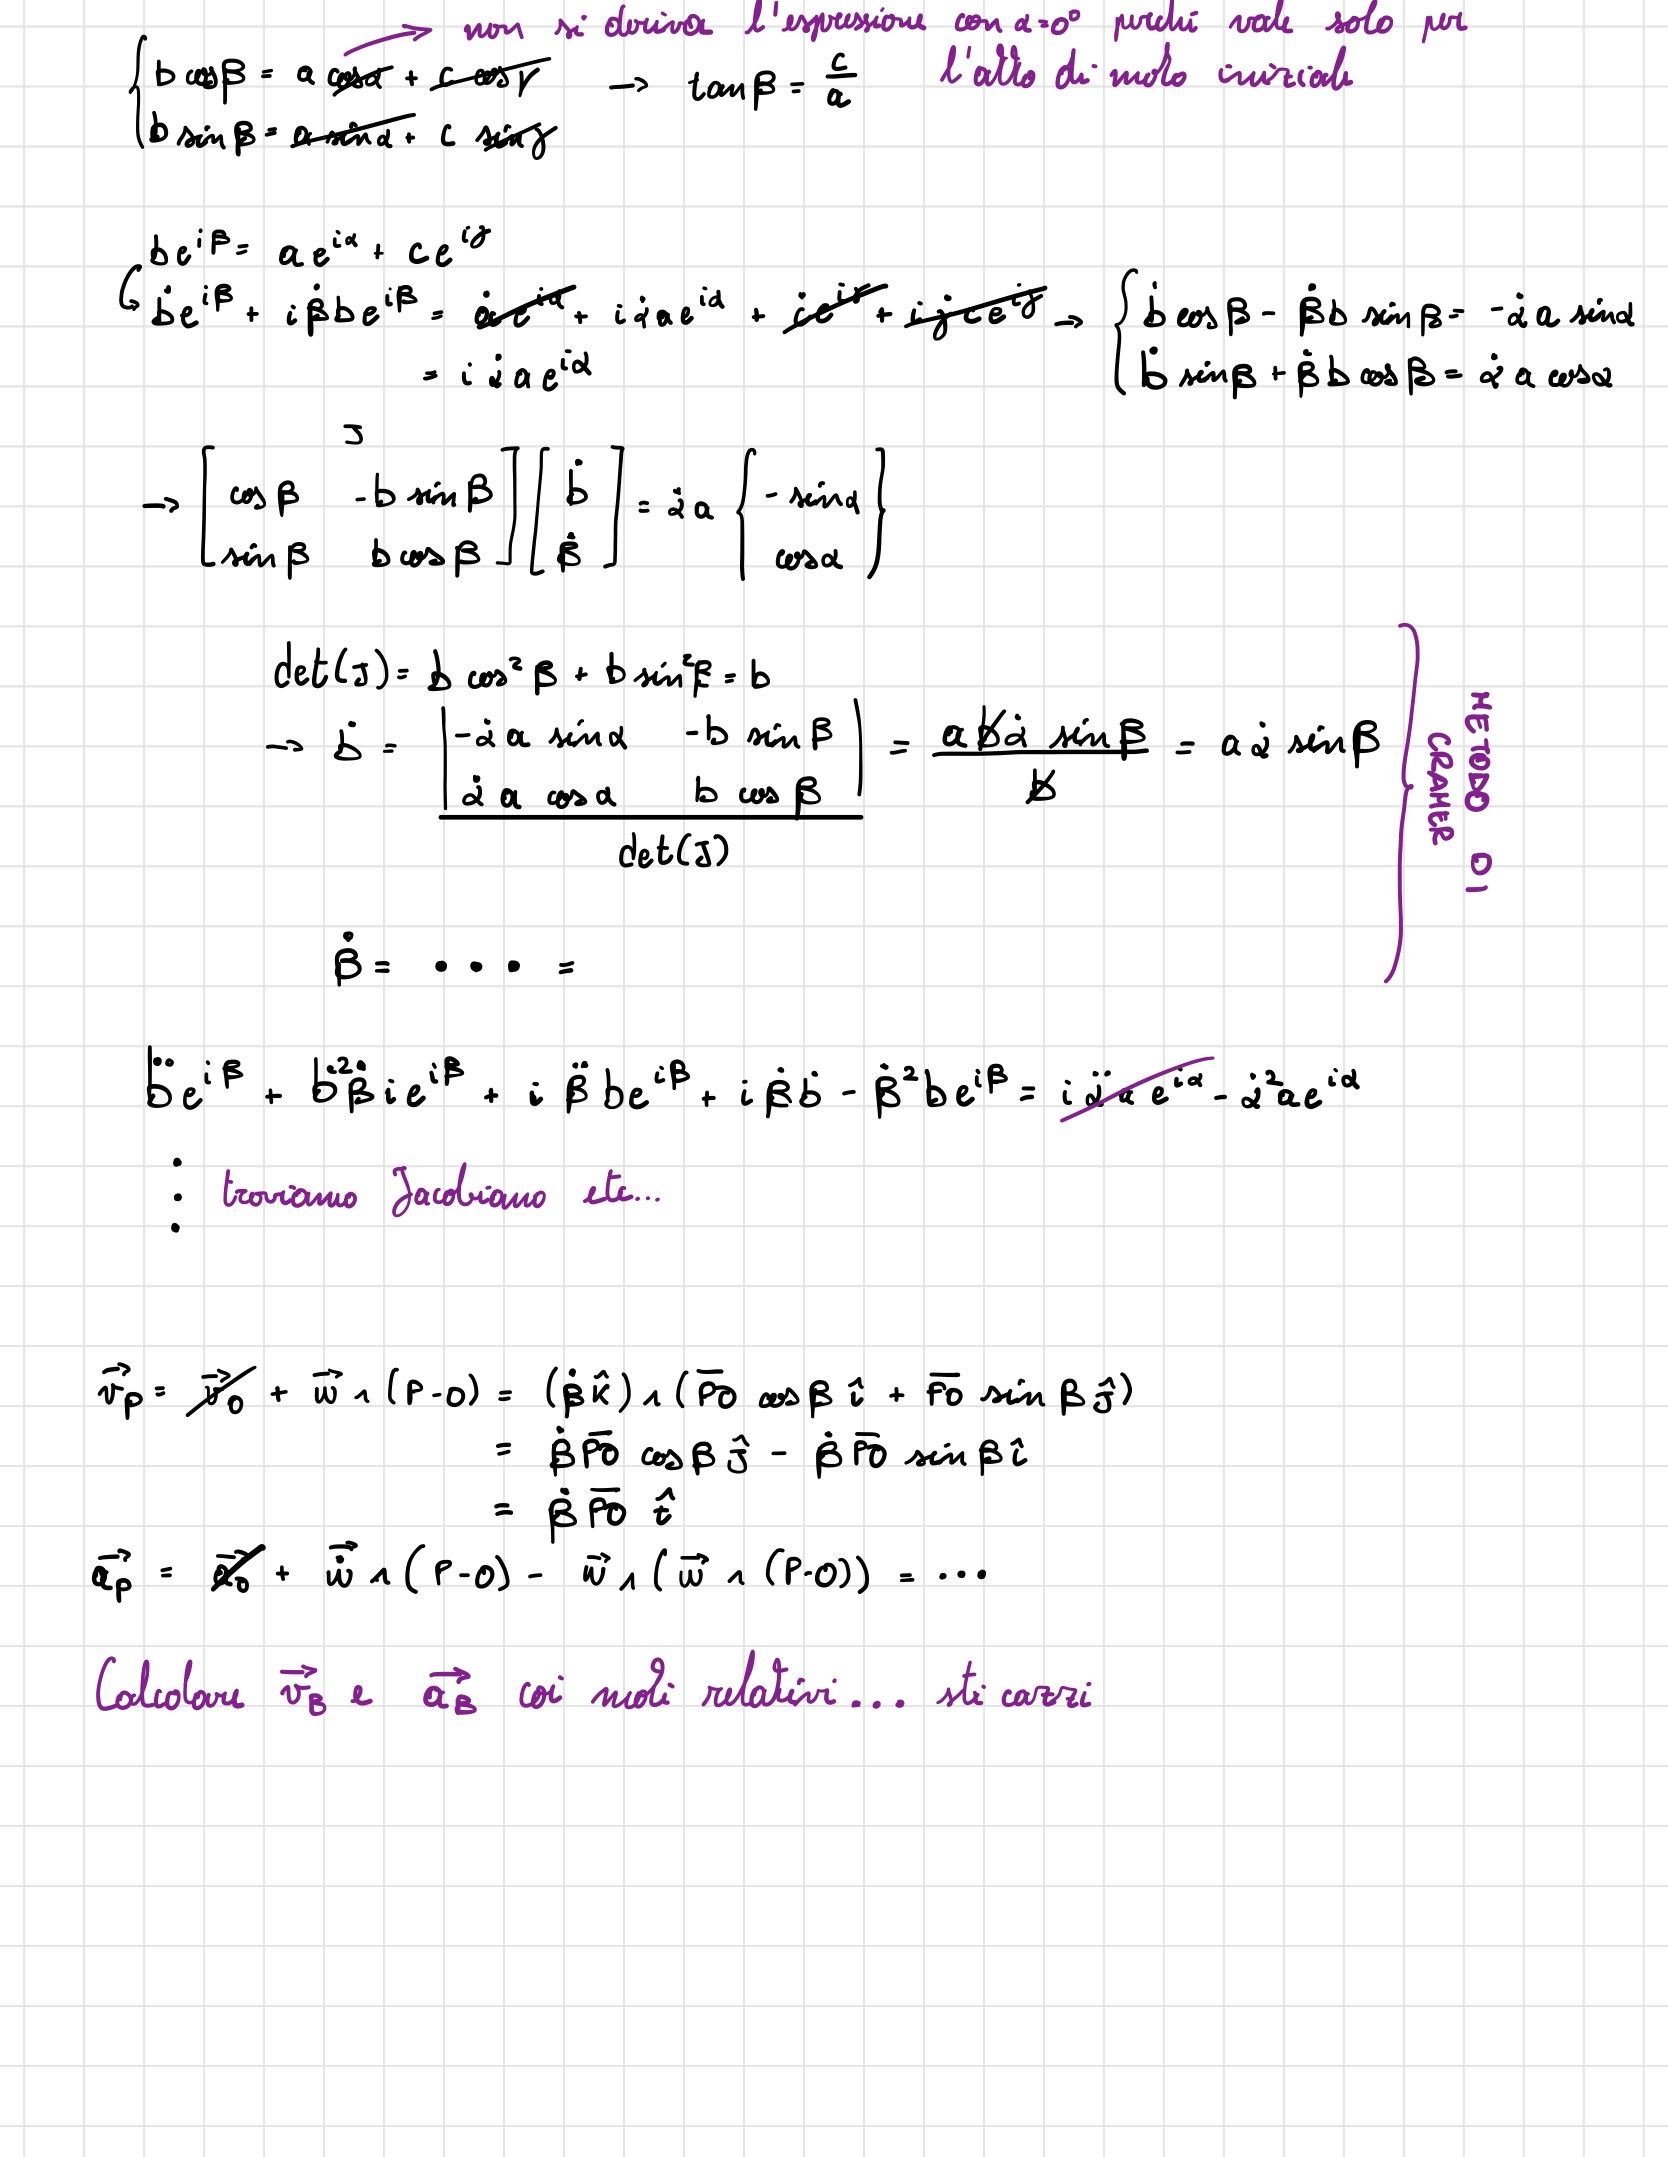 non si deriva l'espressione con α=0° perché vale solo per
l'atto di moto iniziale
{ b cosβ = a cosα + c cosγ → tanβ = c/a
b sinβ = a sinα + c sinγ
be^{iβ} = ae^{iα} + ce^{iγ}
ḃe^{iβ} + iβ̇be^{iβ} = ȧe^{iα} + iα̇ae^{iα} + ċe^{iγ} + iγ̇ce^{iγ} → { ḃ cosβ - β̇b sinβ = -α̇a sinα
= iα̇ae^{iα}
ḃ sinβ + β̇b cosβ = α̇a cosα
J
→ [cosβ -b sinβ] [ḃ] = α̇a {-sinα}
[sinβ b cosβ] [β̇] {cosα}
det(J) = b cos²β + b sin²β = b
→ ḃ = |-α̇a sinα -b sinβ| = abα̇ sinβ / b = aα̇ sinβ
|α̇a cosα b cosβ|
det(J)
METODO DI
CRAMER
β̇ = ... =
b̈e^{iβ} + ḃ²β̇ie^{iβ} + iβ̈be^{iβ} + iβ̇ḃ - β̇²be^{iβ} = iα̈ae^{iα} - α̇²ae^{iα}
⋮ troviamo Jacobiano etc...
v⃗_P = v⃗_O + w⃗ ∧ (P-O) = (β̇k̂) ∧ (P̅O̅ cosβ î + P̅O̅ sinβ ĵ)
= β̇P̅O̅ cosβ ĵ - β̇P̅O̅ sinβ î
= β̇P̅O̅ t̂
a⃗_P = a⃗_O + ẇ⃗ ∧ (P-O) - w⃗ ∧ (w⃗ ∧ (P-O)) = ...
Calcolare v⃗_B e a⃗_B coi moti relativi... sti cazzi